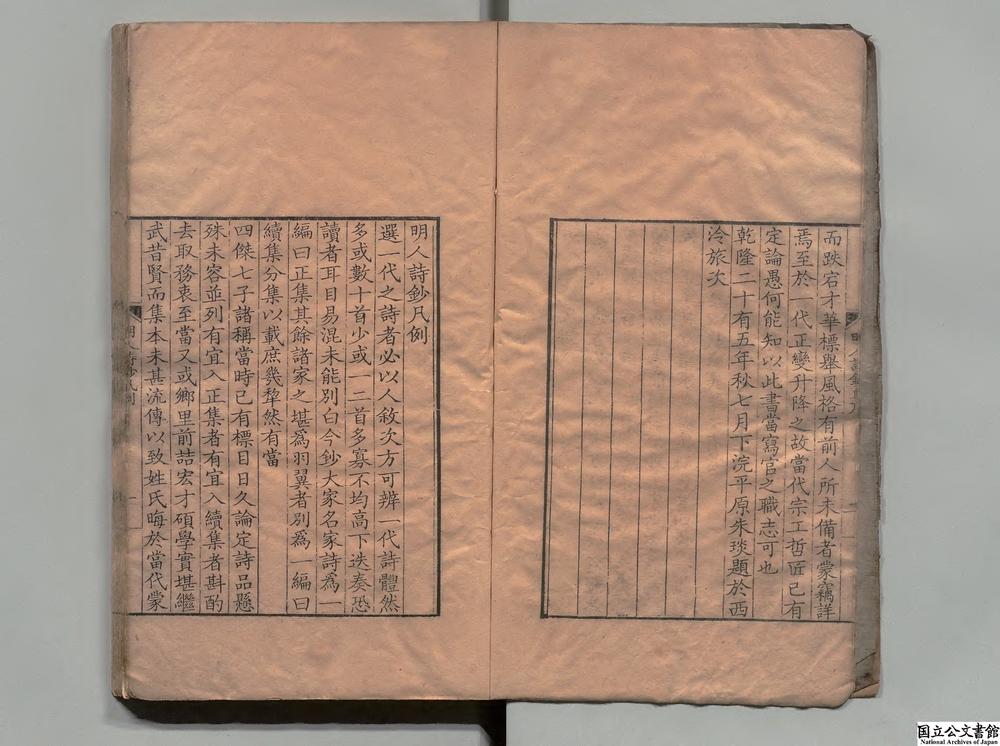 而跌宕才華標舉風格有前人所未備者蒙竊詳
焉至於一代正變升降之故當代宗工哲匠已有
定論愚何能知以此書當寫官之職志可也
乾隆二十有五年秋七月下浣平原朱琰題於西
泠旅次
明人詩鈔凡例
選一代之詩者必以人敘次方可辨一代詩體然
多或數十首少或一二首多寡不均高下迭奏恐
讀者耳目易混未能別白今鈔大家名家詩爲一
編曰正集其餘諸家之堪爲羽翼者別爲一編曰
續集分集以載庶幾犂然有當
四傑七子諸稱當時已有標目日久論定詩品懸
殊未容並列有宜入正集者有宜入續集者斟酌
去取務衷至當又或鄉里前喆宏才碩學實堪繼
武昔賢而集本未甚流傳以致姓氏晦於當代蒙
国立公文書館
National Archives of Japan